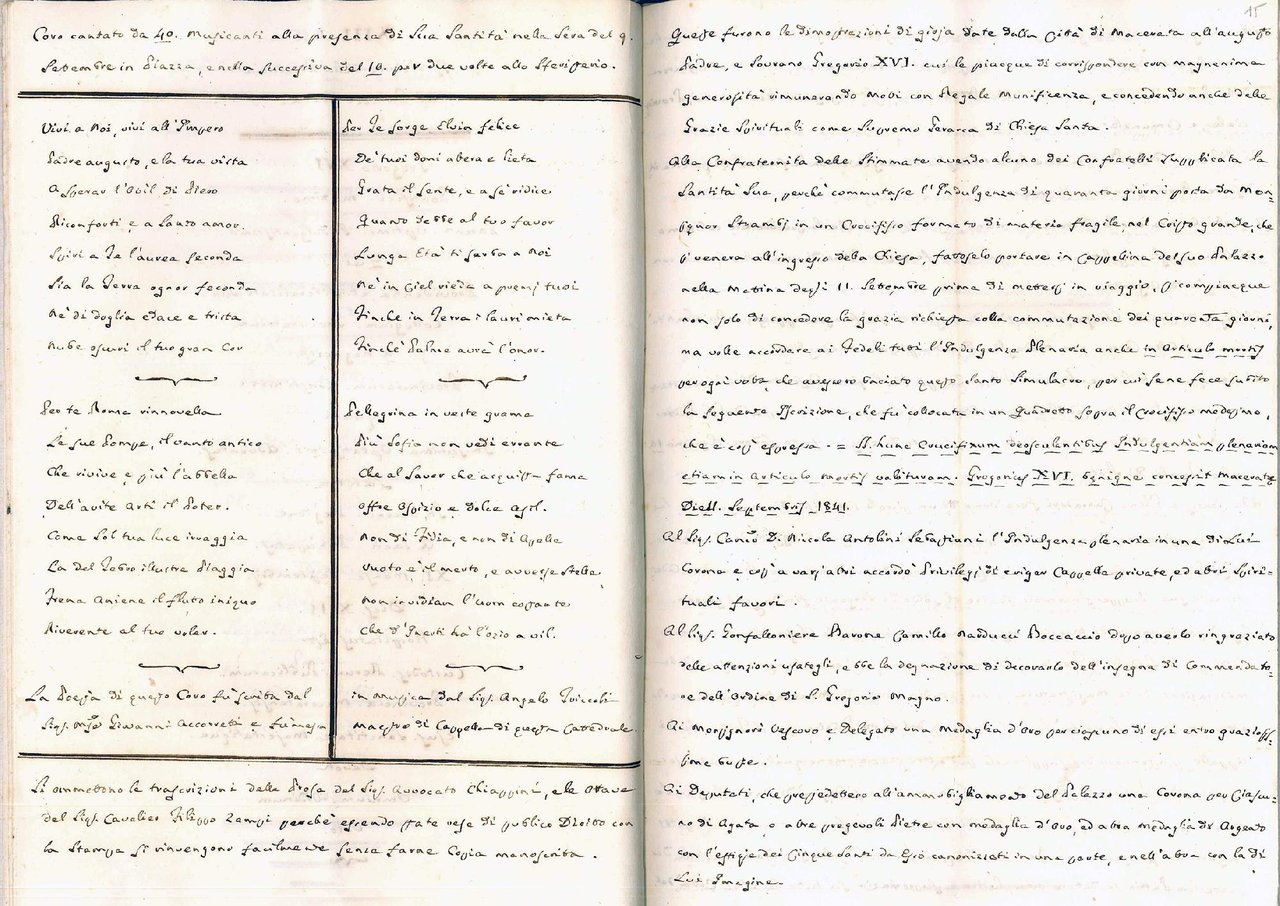 Coro cantato da 40. Musicanti alla presenza di Sua Santità nella Sera del 9.
Settembre in Piazza, e nella successiva del 10. per due volte allo Sferisterio.
Vivi a Noi, vivi all'Impero
Padre augusto, e la tua vista
A sperar l'Ovil di Piero
Riconforti e a santo amor.
Spiri a Te l'aurea seconda
Sia la Terra ognor feconda
Nè di doglia edace e trista
Nube oscuri il tuo gran Cor
Per te Roma rinnovella
Le sue Pompe, il vanto antico
Che rivive e più l'abbella
Dell'avite Arti il Poter.
Come Sol tua luce irraggia
La del Tebro illustre Piaggia
Frena Aniene il flutto iniquo
Riverente al tuo voler.
La Poesia di questo Coro fù scritta dal
Sig. Giovanni Accorretti e fù messa
Per Te sorge Elvia felice
De' tuoi doni altera e lieta
Grata il sente, e a sè ridice
Quanto debbe al tuo favor
Lunga Età ti serba a Noi
Nè in Ciel rieda a premj tuoi
Finche in Terra i lauri mieta
Finchè Palme avrà l'onor.
Pellegrina in veste grama
Più Sofia non vedi errante
Che al Savor che acquista fama
Offre Ospizio e dolce Asil.
Non di Fidia, e non di Apelle
Vuoto è il merto, e avverse Stelle
Non invidian l'uom costante
Che d'Inerti hà l'ozio a vil.
in Musica dal Sig. Angelo
Maestro di Cappella di questa Cattedrale.
Si ommettono le trascrizioni delle Prose del Sig. Avvocato Chiappini, e le Ottave
del Sig. Cavalier Filippo Zampi perchè essendo state rese di publico Diritto con
la Stampa si rinvengono facilmente senza farne Copia manoscritta.
15
Queste furono le dimostrazioni di gioja date dalla Città di Macerata all'augusto
Padre, e Sovrano Gregorio XVI. cui le piacque di corrispondere con magnanima
generosità rimunerando Molti con Regale Munificenza, e concedendo anche delle
Grazie Spirituali come Supremo Gerarca di Chiesa Santa.
Alla Confraternita delle Stimmate avendo alcuno dei Confratelli supplicata la
Santità Sua, perchè commutasse l'Indulgenza di quaranta giorni posta da Mon=
signor Strambi in un Crocifisso formato di materia fragile nel Cristo grande, che
si venera all'ingresso della Chiesa, fattoselo portare in Cappellina del suo Palazzo
nella Mattina degli 11. Settembre prima di mettersi in viaggio, si compiacque
non solo di concedere la grazia richiesta colla commutazione dei quaranta giorni,
ma volle accordare ai Fedeli tutti l'Indulgenza Plenaria anche in Articulo mortis
per ogni volta, che avessero baciato questo Santo Simulacro, per cui se ne fece subito
la seguente Iscrizione, che fù collocata in un Quadretto sopra il Crocifisso medesimo,
che è così espressa. = hunc Crucifixum deosculantibus Indulgentiam plenariam
etiam in Articulo mortis valituram. Gregorius XVI. benigne concessit Maceratæ
Die 11. Septembris 1841.
Al Sig. Canco D. Niccola Antolini Sebastiani l'Indulgenza plenaria in una di Lui
Corona e così a varj altri accordò Privilegj di eriger Cappelle private, ed altri Spiri=
tuali favori.
Al Sig. Gonfaloniere Barone Camillo Narducci Boccaccio dopo averlo ringraziato
delle attenzioni usategli, ebbe la degnazione di decorarlo dell'insegna di Commendato=
re dell'Ordine di S. Gregorio Magno.
Ai Monsignori Vescovo e Delegato una Medaglia d'Oro per ciascuno di essi entro graziosis=
sime buste.
Ai Deputati, che presiedettero all'ammobigliamento del Palazzo una Corona per Ciascu=
no di Agata, o altre pregevoli Pietre con medaglia d'Oro, ed altra Medaglia di Argento
con l'effigie dei Cinque Santi da Esso canonizzati in una parte, e nell'altra con la di
Lui Imagine.